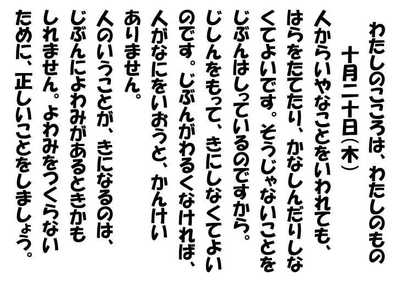 わたしのこころは、わたしのもの
十月二十日(木)
人からいやなことをいわれても、
はらをたてたり、かなしんだりしな
くてよいです。そうじゃないことを
じぶんはしっているのですから。
じしんをもって、きにしなくてよい
のです。じぶんがわるくなければ、
人がなにをいおうと、かんけい
ありません。
人のいうことが、きになるのは、
じぶんによわみがあるときかも
しれません。よわみをつくらない
ために、正しいことをしましょう。